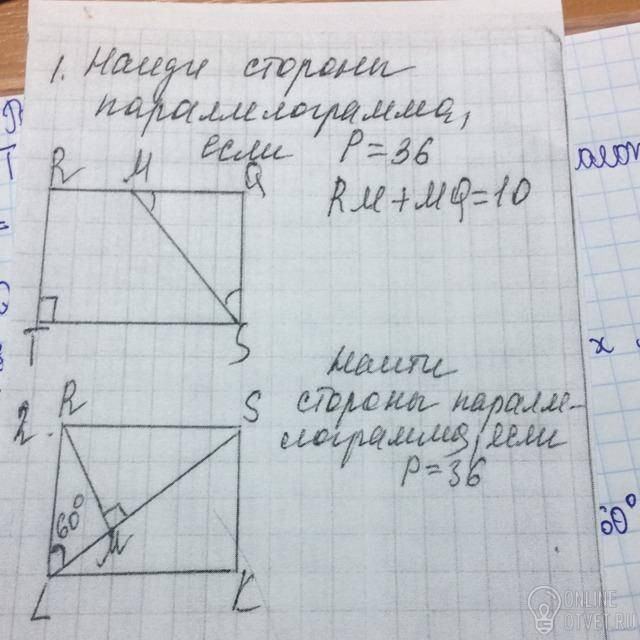 1. Найди стороны
параллелограмма,
если P=36
R M Q
RM+MQ=10
T S
Найти
стороны паралле-
лограмма, если
P=36
2. R S
60°
M
L K
x
60°
ONLINE
OTVET.RU